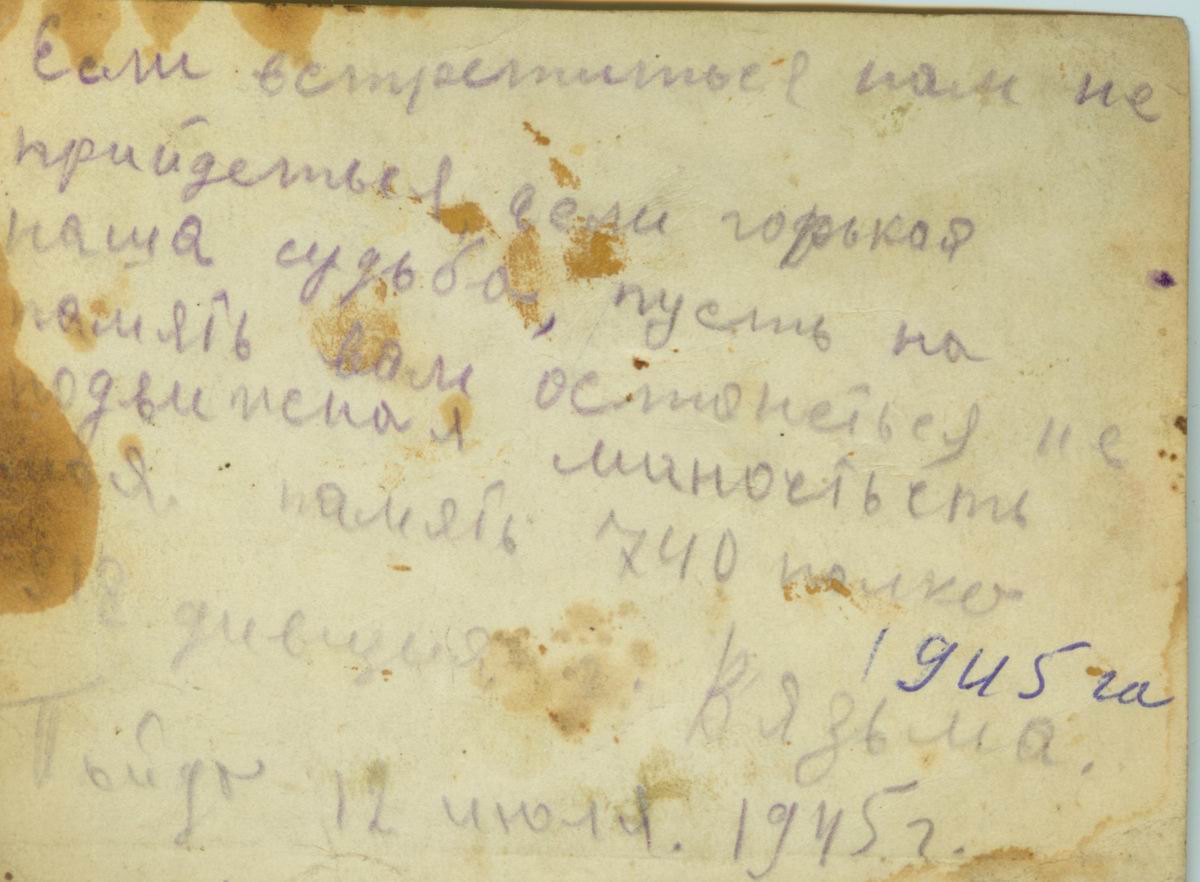 Если встретиться нам не
прийдеться, если горькая
наша судьба, пусть на
память вам останеться не
подвижная миностьсть
моя. память 740 полка
дивизия г. Вязьма.
1945 га
12 июля. 1945 г.